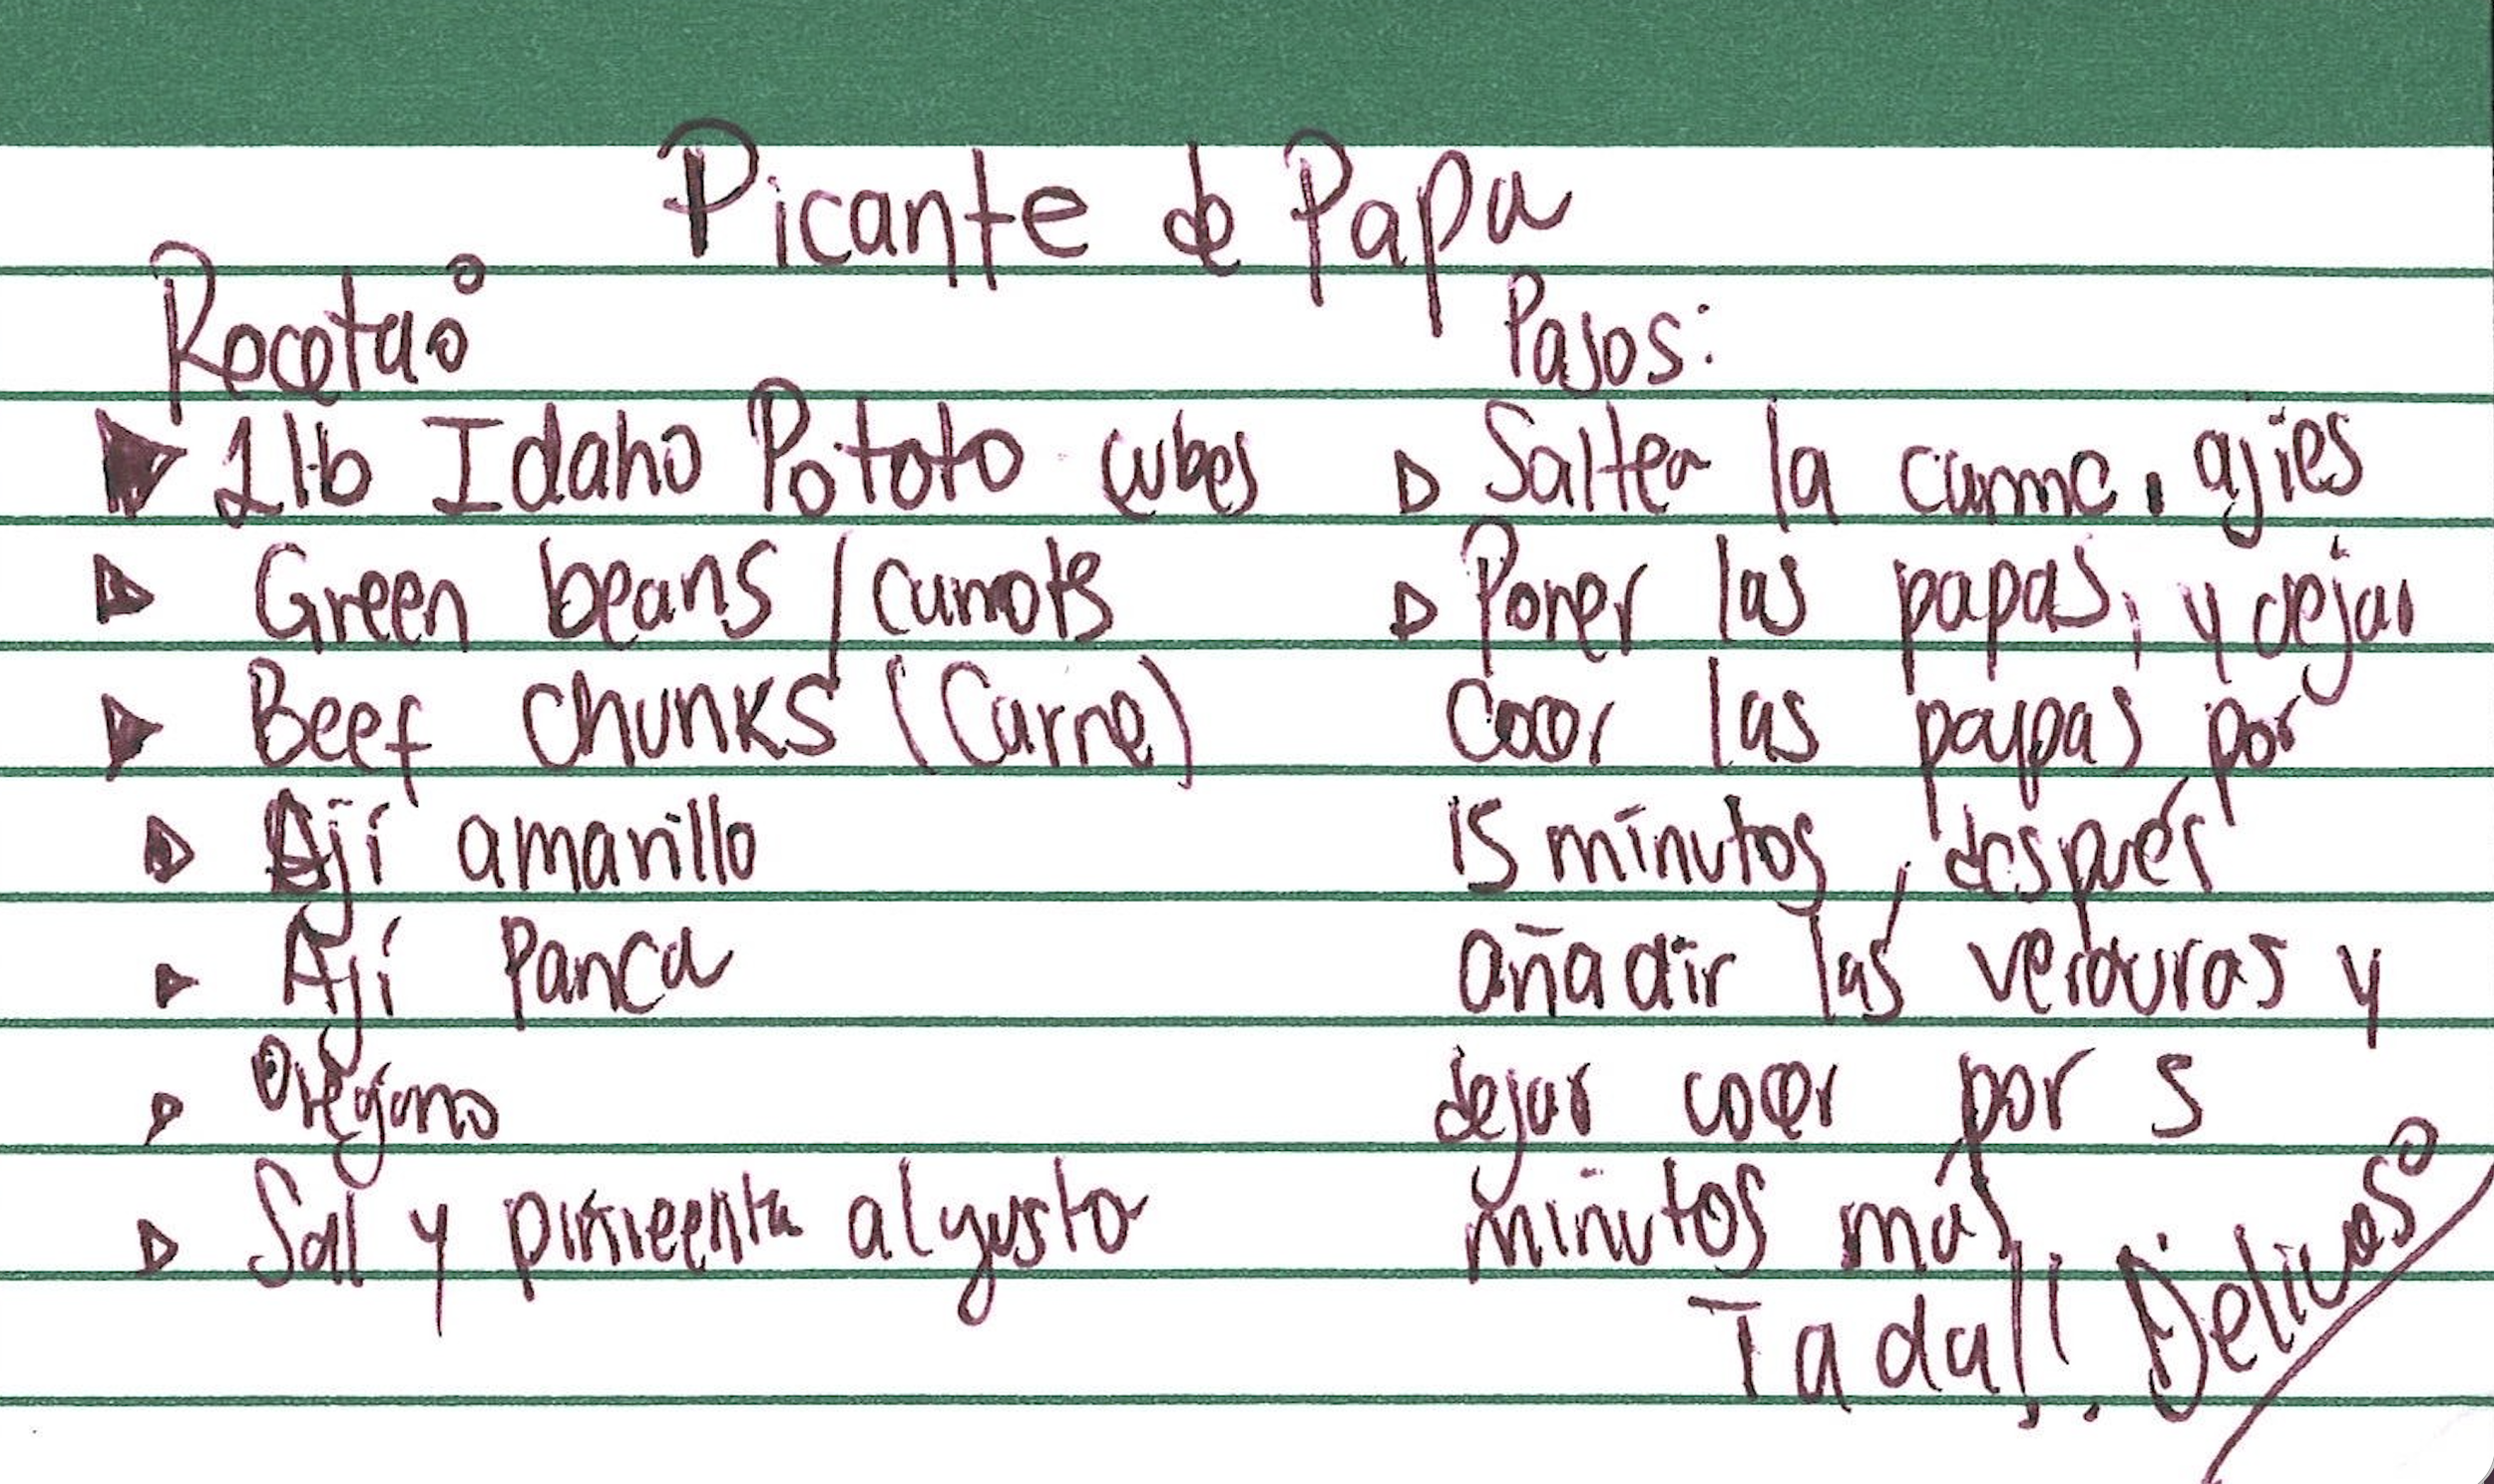 Picante de Papa
Receta:
1 lb Idaho Potato cubes
Green beans / carrots
Beef chunks (Carne)
Ají amarillo
Ají Panca
Orégano
Sal y pimieenta al gusto
Pasos:
Saltea la carne, ajies
Poner las papas, y dejar
cocer las papas por
15 minutos, después
añadir las verduras y
dejar cocer por 5
minutos más
Tada!! Delicoso